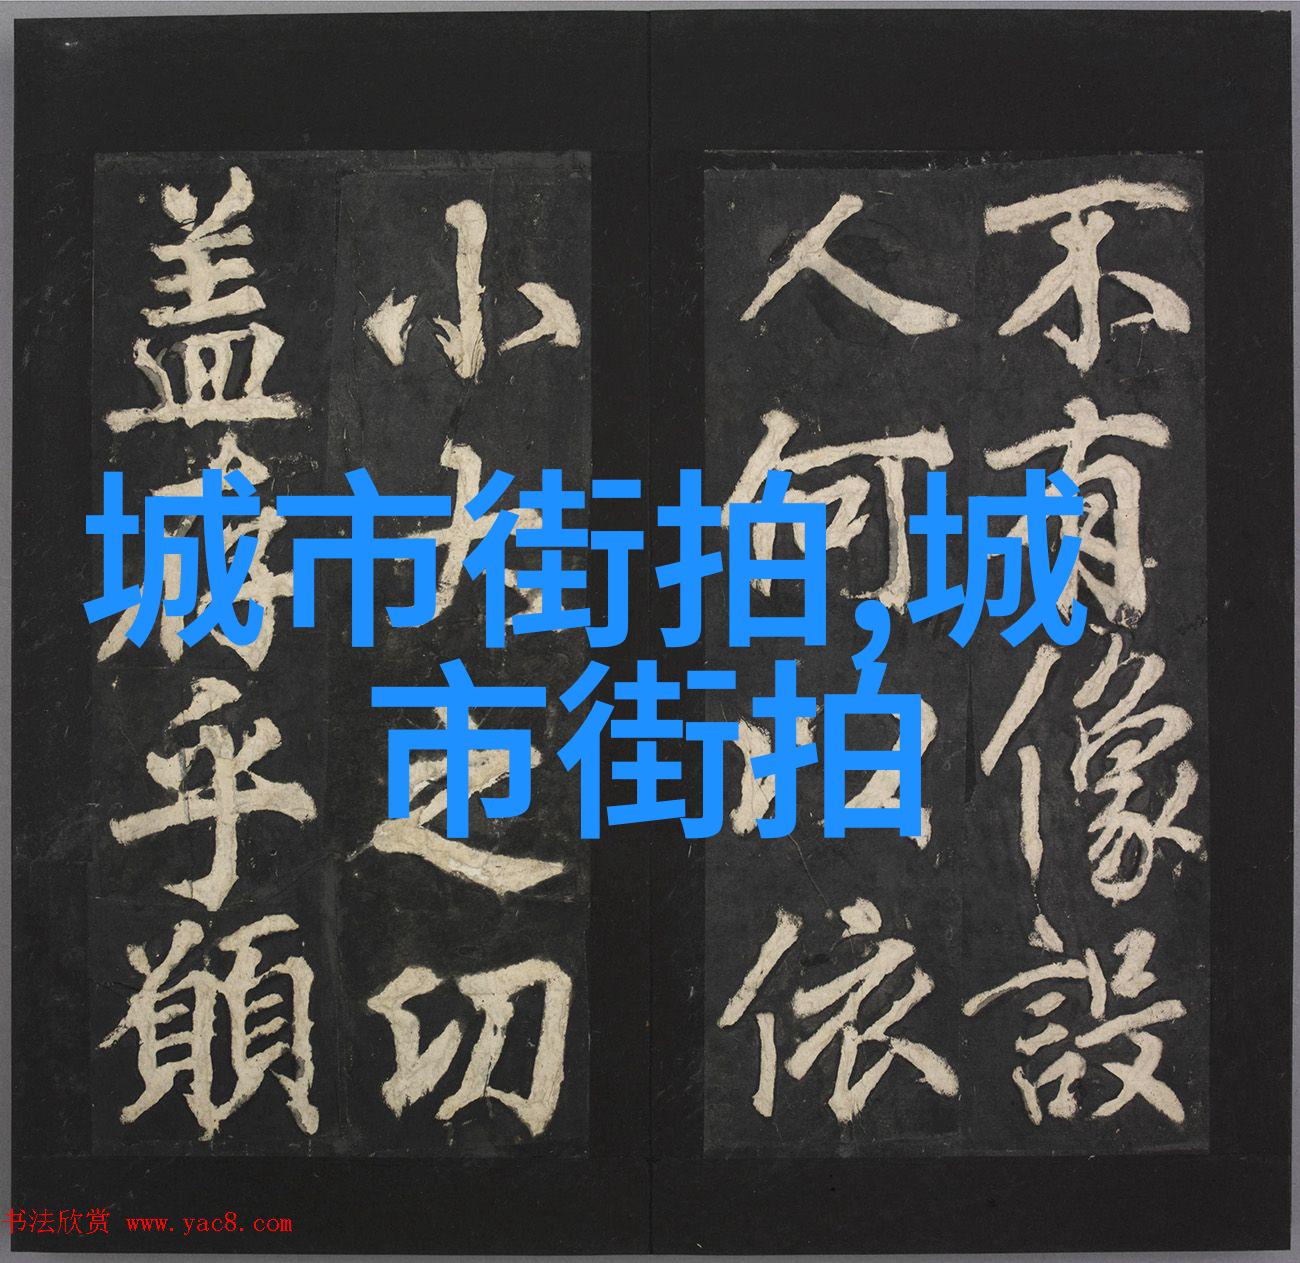 不有像設
人何以依
小大之切
盖乎願
城市街拍,城
市街拍
书法欣赏 www.yac8.com